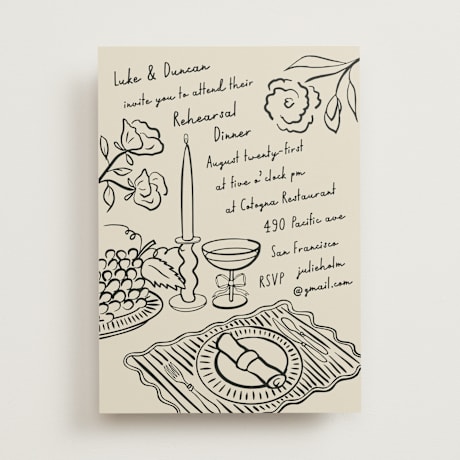 Luke & Duncan
invite you to attend their
Rehearsal
Dinner
August twenty-first
at five o'clock pm
at Cotogna Restaurant
490 Pacific ave
San Francisco
RSVP julieholm
@gmail.com